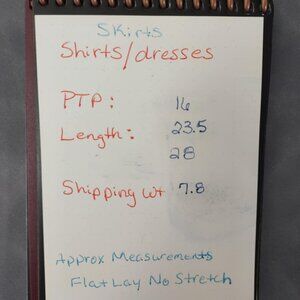 Skirts
Shirts/dresses
PTP: 16
Length: 23.5
28
Shipping wt 7.8
Approx Measurements
Flat Lay No Stretch